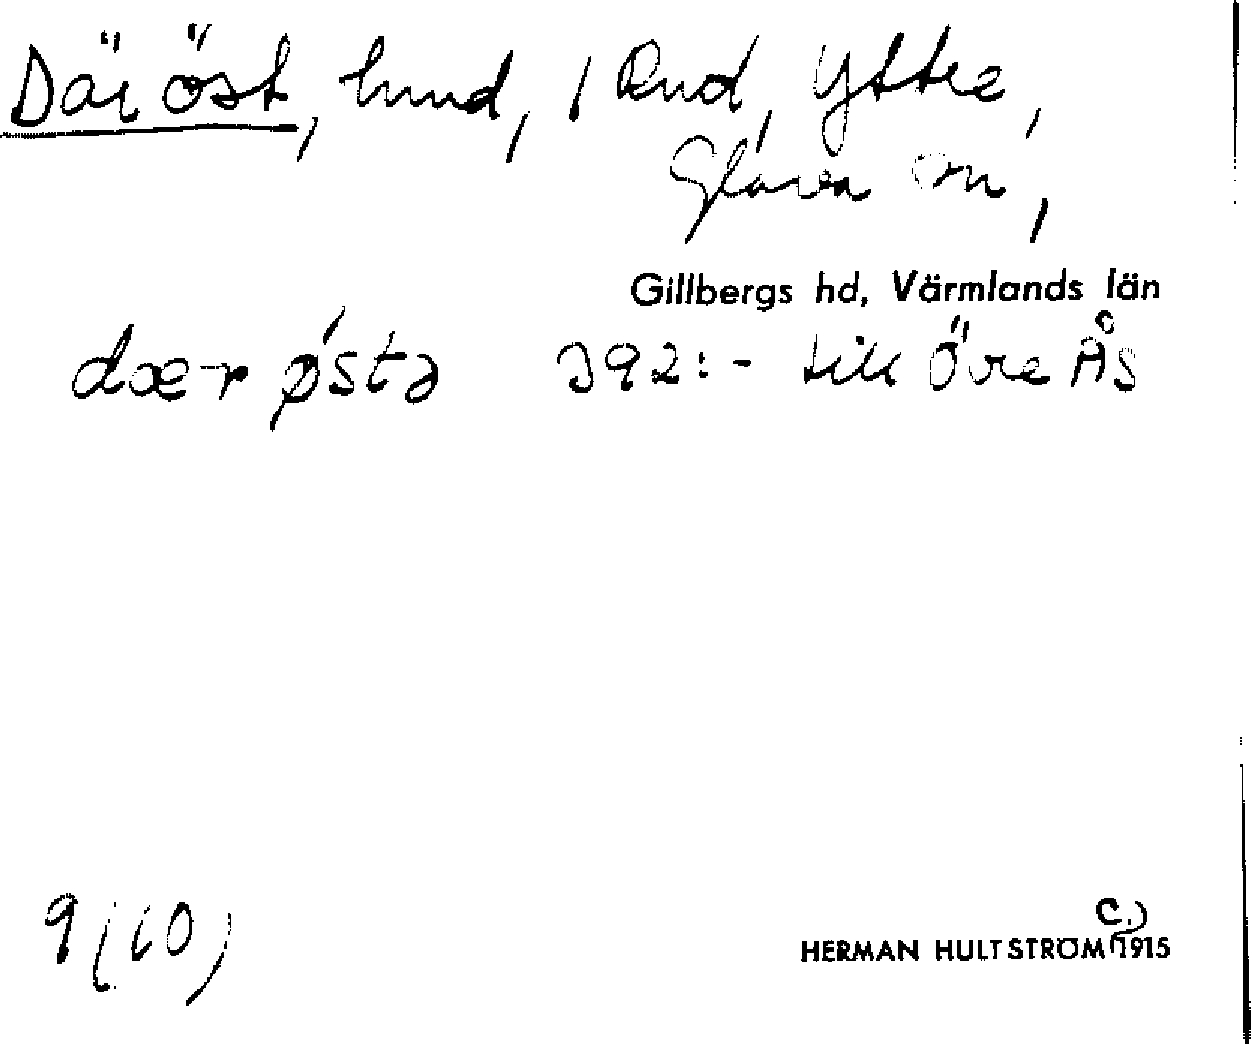 Där öst, hmd, / Rud, Yttre,
Glava sn,
Gillbergs hd, Värmlands län
dær østə 392:- till Övre Ås
9(10)
HERMAN HULTSTRÖM (c.) 1915